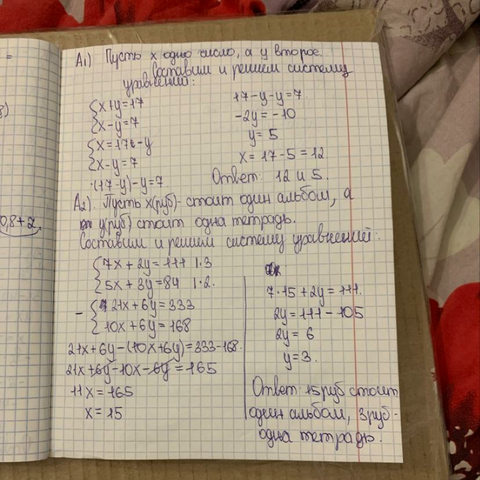 A1) Пусть x одно число, а y второе.
Составим и решим систему
уравнений:
{x+y=17
{x-y=7
{x=17-y
{x-y=7
(17-y)-y=7
17-y-y=7
-2y=-10
y=5
x=17-5=12
Ответ: 12 и 5.
A2). Пусть x(руб)- стоит один альбом, а
y(руб) стоит одна тетрадь.
Составим и решим систему уравнений:
{7x+2y=111 |·3
{5x+3y=84 |·2.
-{21x+6y=333
{10x+6y=168
21x+6y-(10x+6y)=333-168.
21x+6y-10x-6y=165
11x=165
x=15
7·15+2y=111.
2y=111-105
2y=6
y=3.
Ответ: 15руб стоит
один альбом, 3руб-
одна тетрадь.
0,8+2.